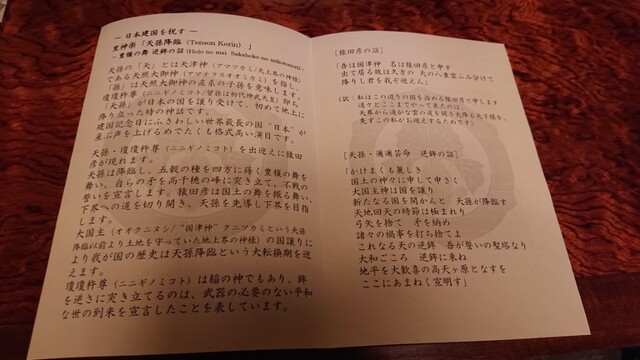 ～ 日本建国を祝す ～
里神楽「天孫降臨 (Tenson Korin) 」
－豊穣の舞 逆鉾の詔 (Hojo no mai. Sakahoko no mikotonori)－
天孫の「天」とは天津神（アマツカミ/天上界の神様）
である天照大御神（アマテラスオオミカミ）を指し、
「孫」は天照大御神の直系の子孫を意味します。
瓊瓊杵尊（ニニギノミコト/曾孫は初代神武天皇）即ち
「天孫」が日本の国を譲り受けて、初めて地上に
降り立った時の神話です。
建国記念日にふさわしい世界最長の国“日本”が
産ぶ声を上げるめでたくも格式高い演目です。
天孫・瓊瓊杵尊（ニニギノミコト）を出迎えに猿田
彦が現れます。
天孫は降臨し、五穀の種を四方に蒔く豊穣の舞を
舞い、自らの矛を高千穂の峰に突き立て、不戦の
誓いを宣言します。猿田彦は国土の舞を振る舞い、
下界への道を切り開き、天孫を先導し下界を目指
します。
大国主（オオクニヌシ/“国津神”クニツカミという天孫
降臨以前より土地を守っていた地上界の神様）の国譲りに
より我が国の歴史は天孫降臨という大転換期を迎
えます。
瓊瓊杵尊（ニニギノミコト）は稲の神でもあり、鉾
を逆さに突き立てるのは、武器の必要のない平和
な世の到来を宣言したことを表しています。
［猿田彦の詔］
「吾は国津神 名は猿田彦と申す
出で居る故は久方の 天の八重雲ふみ分けて
降りし君を我ぞ迎えん」
（訳 私はこの辺りの国を治める猿田彦と申します
道々とここまでやって来たのは、
天界から遥かな雲の道を開き天降る天子様を、
先ずこの私がお迎えするためです）
［天孫・邇邇芸命 逆鉾の詔］
「かけまくも麗しき
国土の神々に申して申さく
大国主神は国を譲り
新たなる国を開かんと 天孫が降臨す
天地回天の時節は極まれり
弓矢を捨て 矛を納め
諸々の禍事を打ち捨てよ
これなる天の逆鉾 吾が誓いの堅塔なり
大和ごころ 逆鉾に束ね
地平を大歓喜の高天ヶ原となすを
ここにあまねく宣明す」